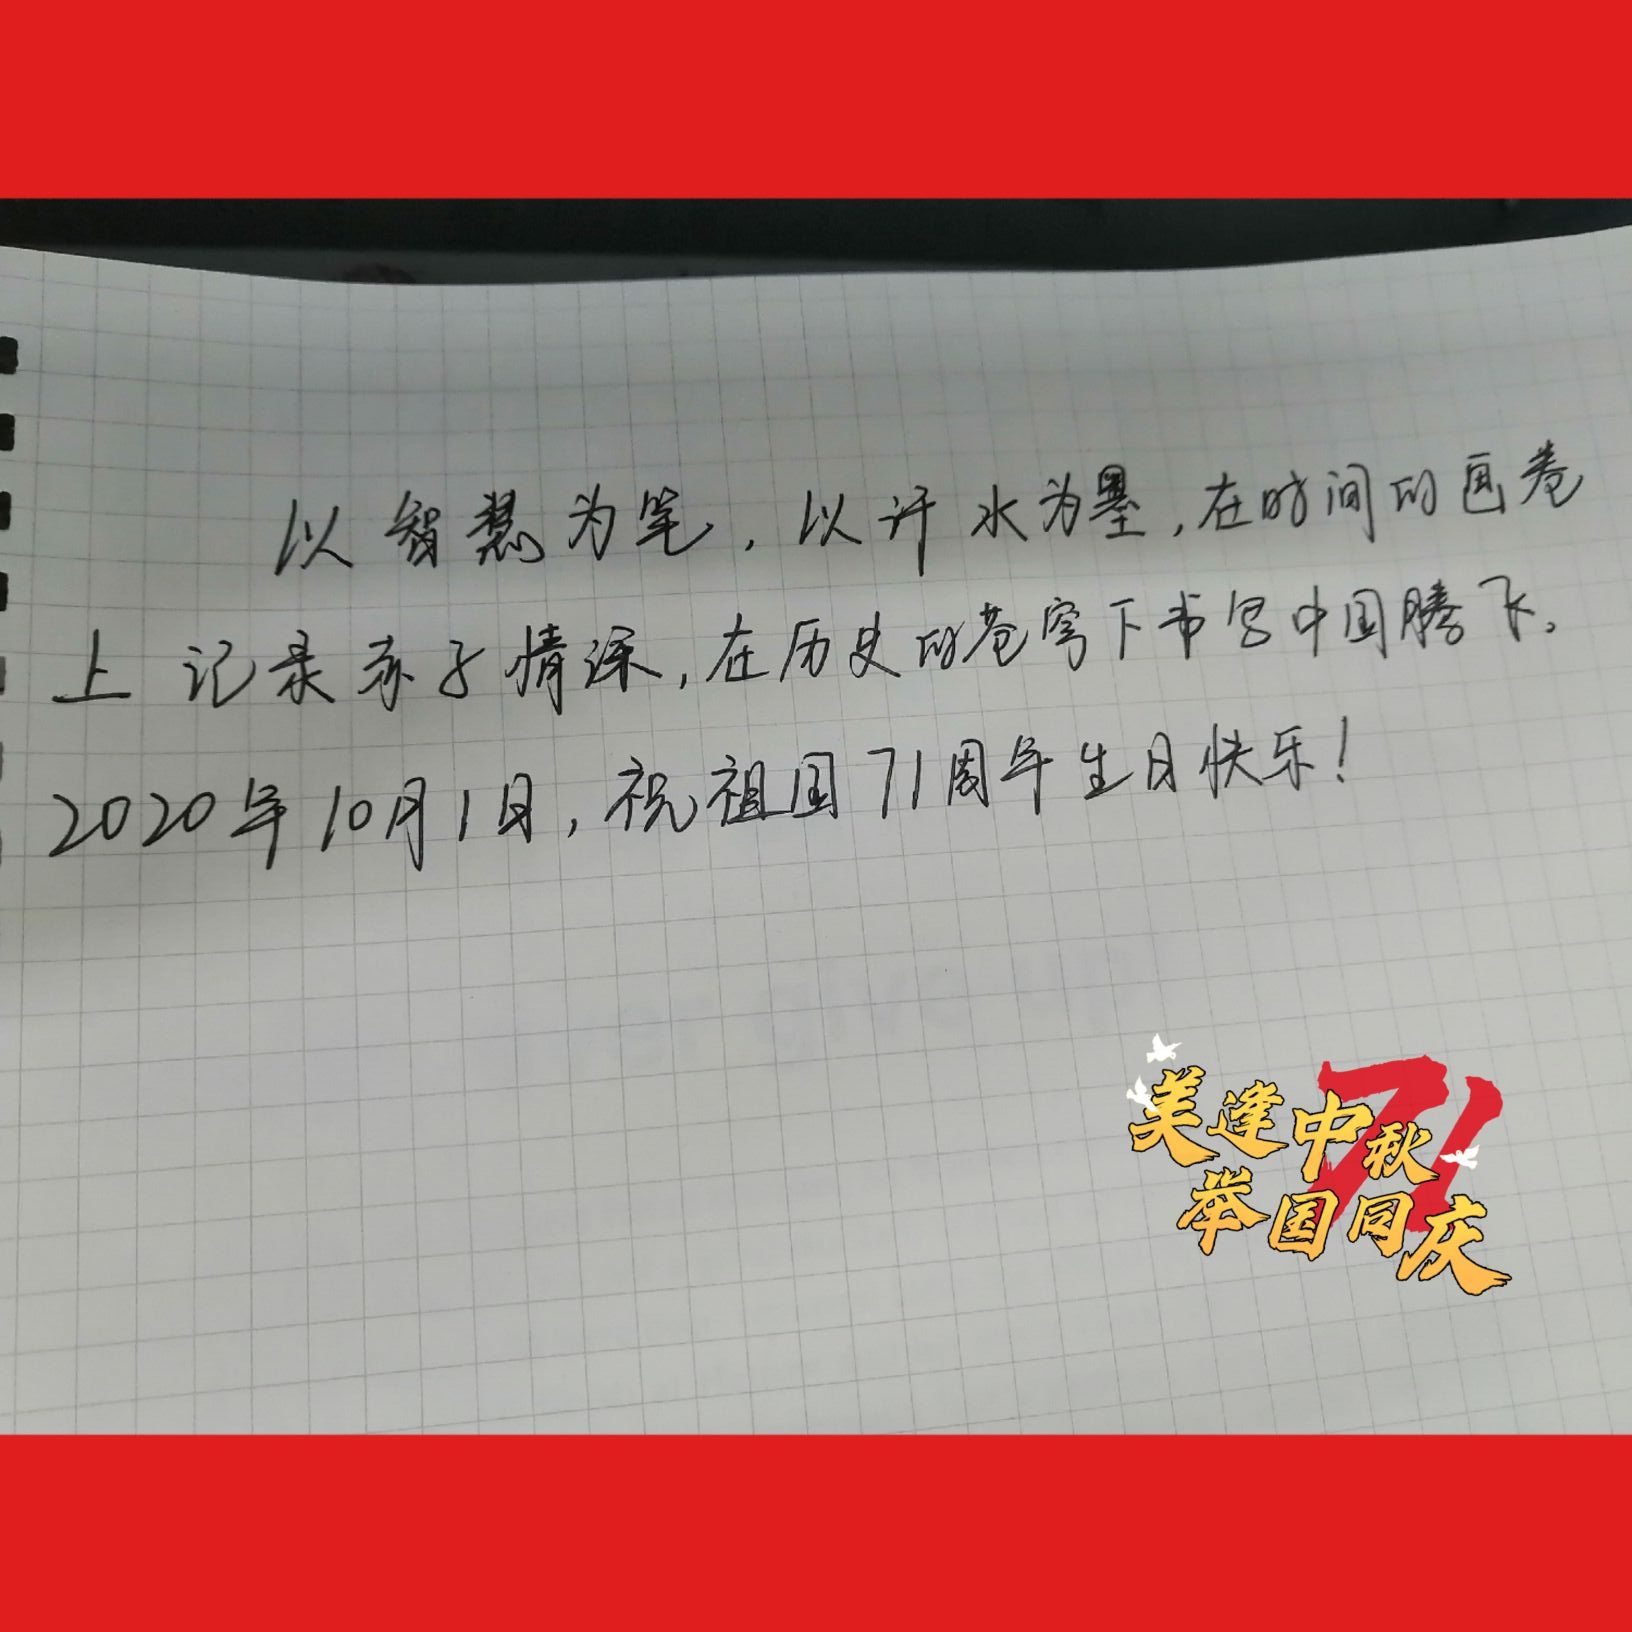 以智慧为笔，以汗水为墨，在时间的画卷
上记录赤子情深，在历史的苍穹下书写中国腾飞。
2020年10月1日，祝祖国71周年生日快乐！
71
美逢中秋
举国同庆